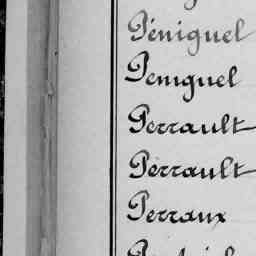 Péniguel
Peniguel
Perrault
Perrault
Perraux